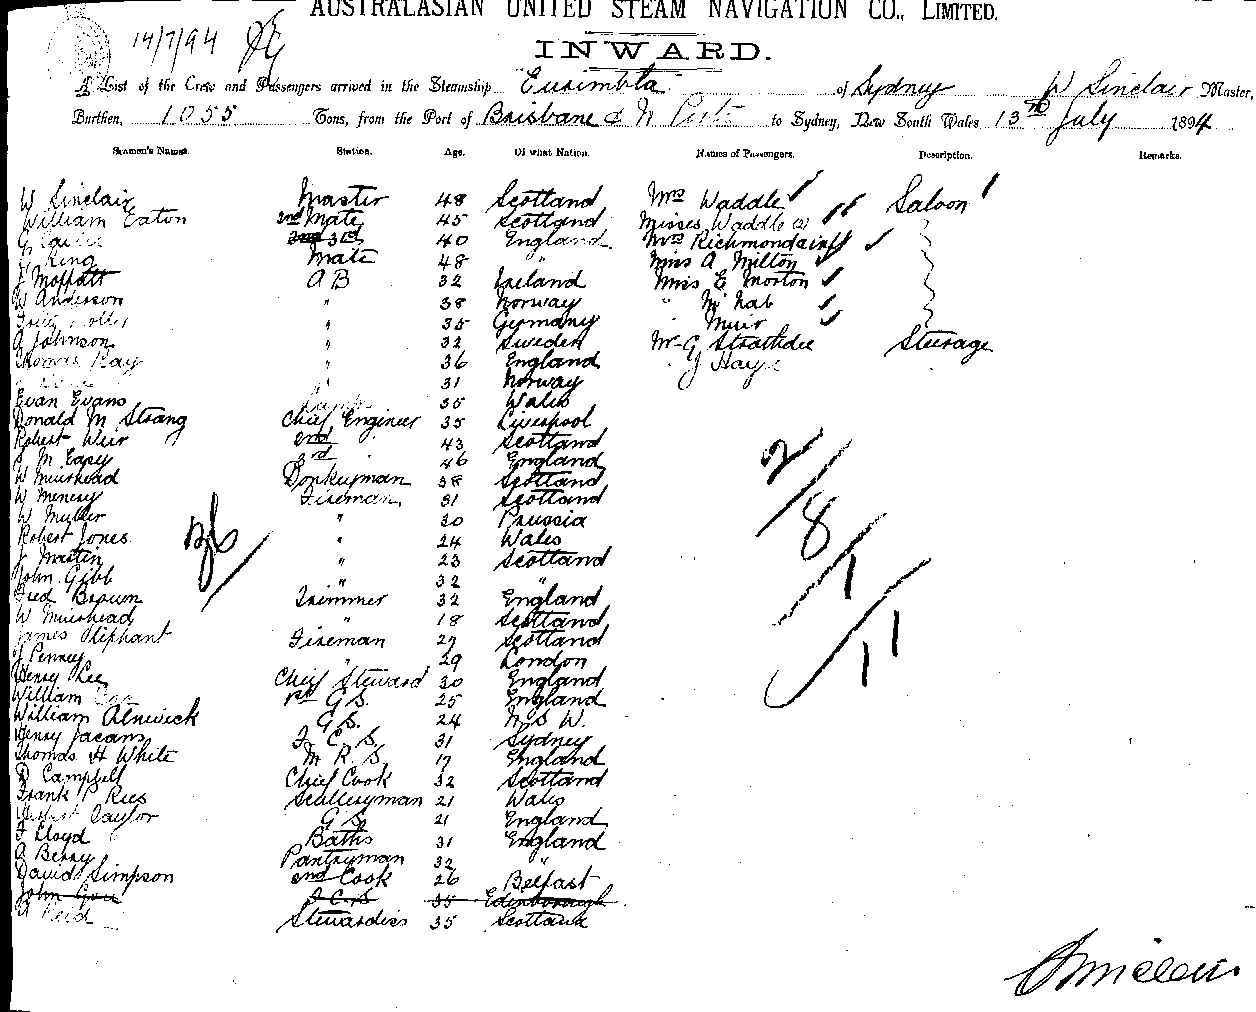 AUSTRALASIAN UNITED STEAM NAVIGATION CO., LIMITED.
14/7/94
INWARD.
A List of the Crew and Passengers arrived in the Steamship Eurimbla of Sydney W Sinclair Master,
Burthen, 1055 Tons, from the Port of Brisbane & N Ports to Sydney, New South Wales 13th July 1894
Seamen's Names. Station. Age. Of what Nation. Names of Passengers. Description. Remarks.
W Sinclair Master 48 Scotland Mrs Waddle Saloon
William Eaton 2nd Mate 45 Scotland Misses Waddle (2)
G 2nd 3rd 40 England Mrs Richmond
J King Mate 48 " Miss A Milton
J Moffatt A B 32 Ireland Miss E Morton
W Anderson " 38 Norway " McNab
" 35 Germany " Muir
A Johnson " 32 Sweden Mr G Strathdee Steerage
Thomas Ray " 36 England J Hay
" 31 Norway
Evan Evans Lamps 35 Wales
Donald M Strang Chief Engineer 35 Liverpool
Robert Weir 2nd 43 Scotland
3rd 46 England
W Muirhead Donkeyman 38 Scotland
W Menery Fireman 31 Scotland
W Muller " 30 Prussia
Robert Jones " 24 Wales
J Martin " 23 Scotland
John Gibb " 32 "
Fred Brown Trimmer 32 England
W Muirhead " 18 Scotland
James Oliphant Fireman 27 Scotland
J Penney " 29 London
Henry Lee Chief Steward 30 England
William 1st G S. 25 England
William Alnwick G S. 24 N S W.
Henry Jacans F. C. S. 31 Sydney
Thomas H White M R S 17 England
D Campbell Chief Cook 32 Scotland
Frank P Rees Sculleryman 21 Wales
Herbert Taylor G S 21 England
F Lloyd Baths 31 England
A Berry Pantryman 32 "
David Simpson 2nd Cook 26 Belfast
John Gow S. C. S 35 Edinborough
A Reid Stewardess 35 Scotland
36/
2/
8/
1/
11